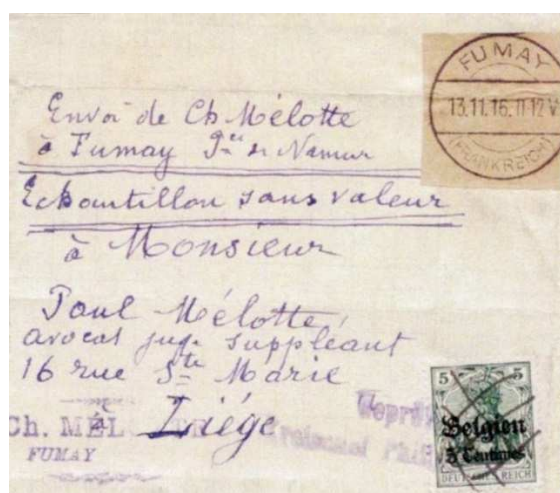 FUMAY
13.11.16.11-12V.
(FRANKREICH)
Envoi de Ch Mélotte
à Fumay Pce de Namur
Echantillon sans valeur
à Monsieur
Paul Mélotte,
avocat jug. suppléant
16 rue Ste Marie
à Liége
Ch. MÉL
FUMAY
Geprü
5 5
Belgien
5 Centimes
DEUTSCHES REICH